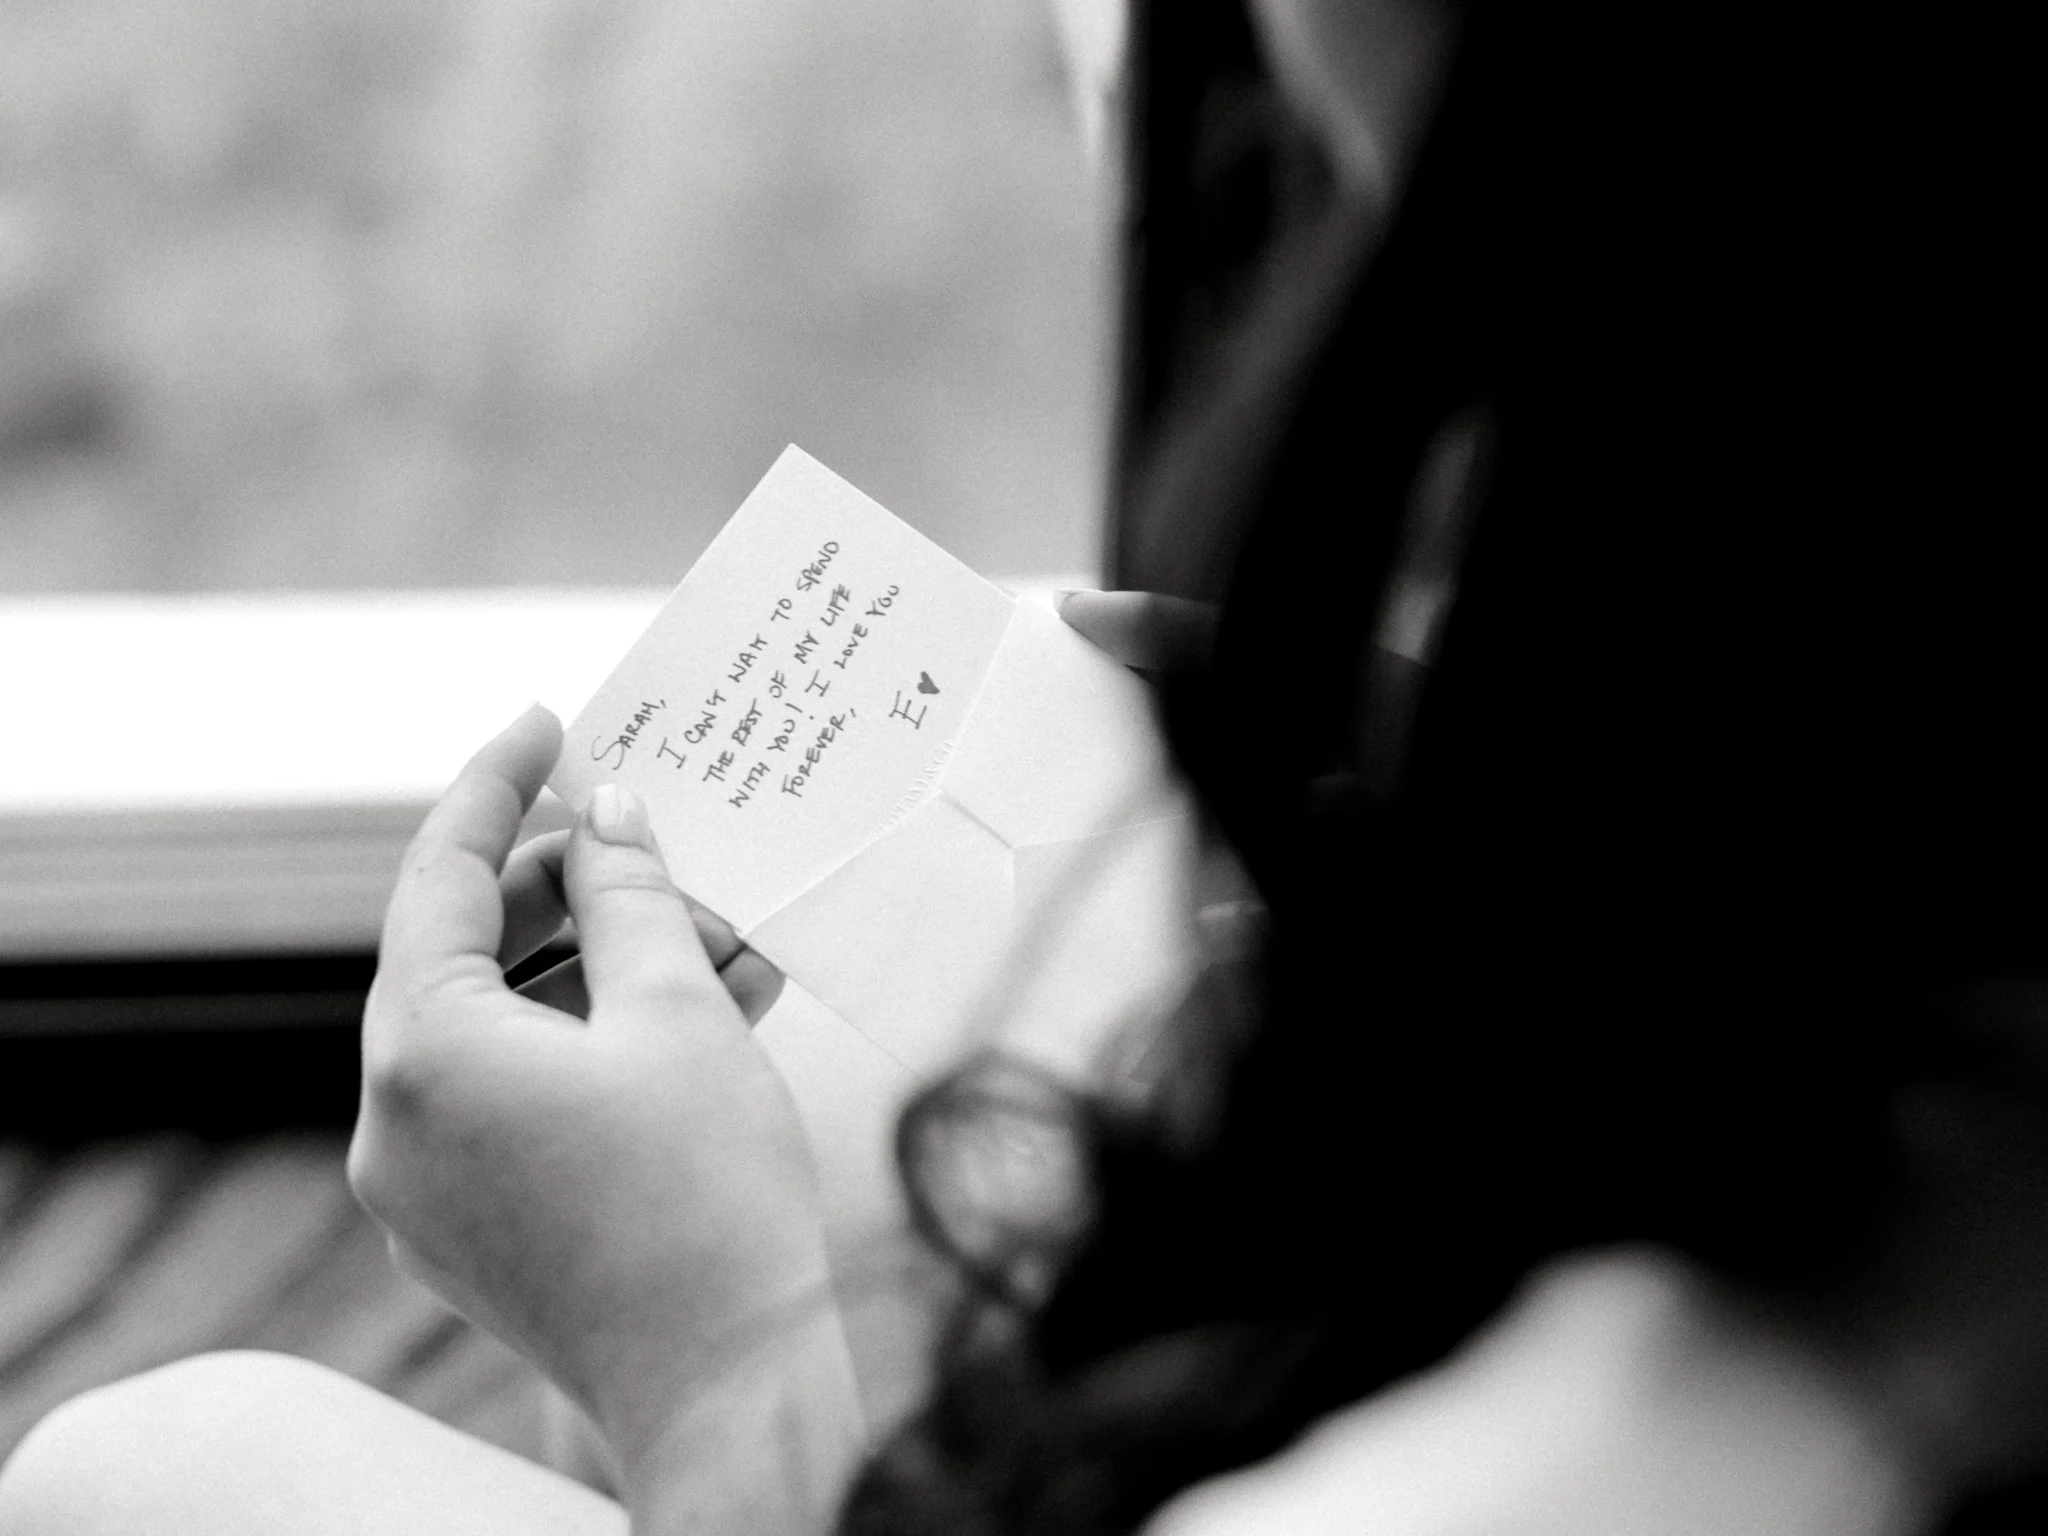 SARAH,
I CAN'T WAIT TO SPEND
THE REST OF MY LIFE
WITH YOU! I LOVE YOU
FOREVER,
E♥